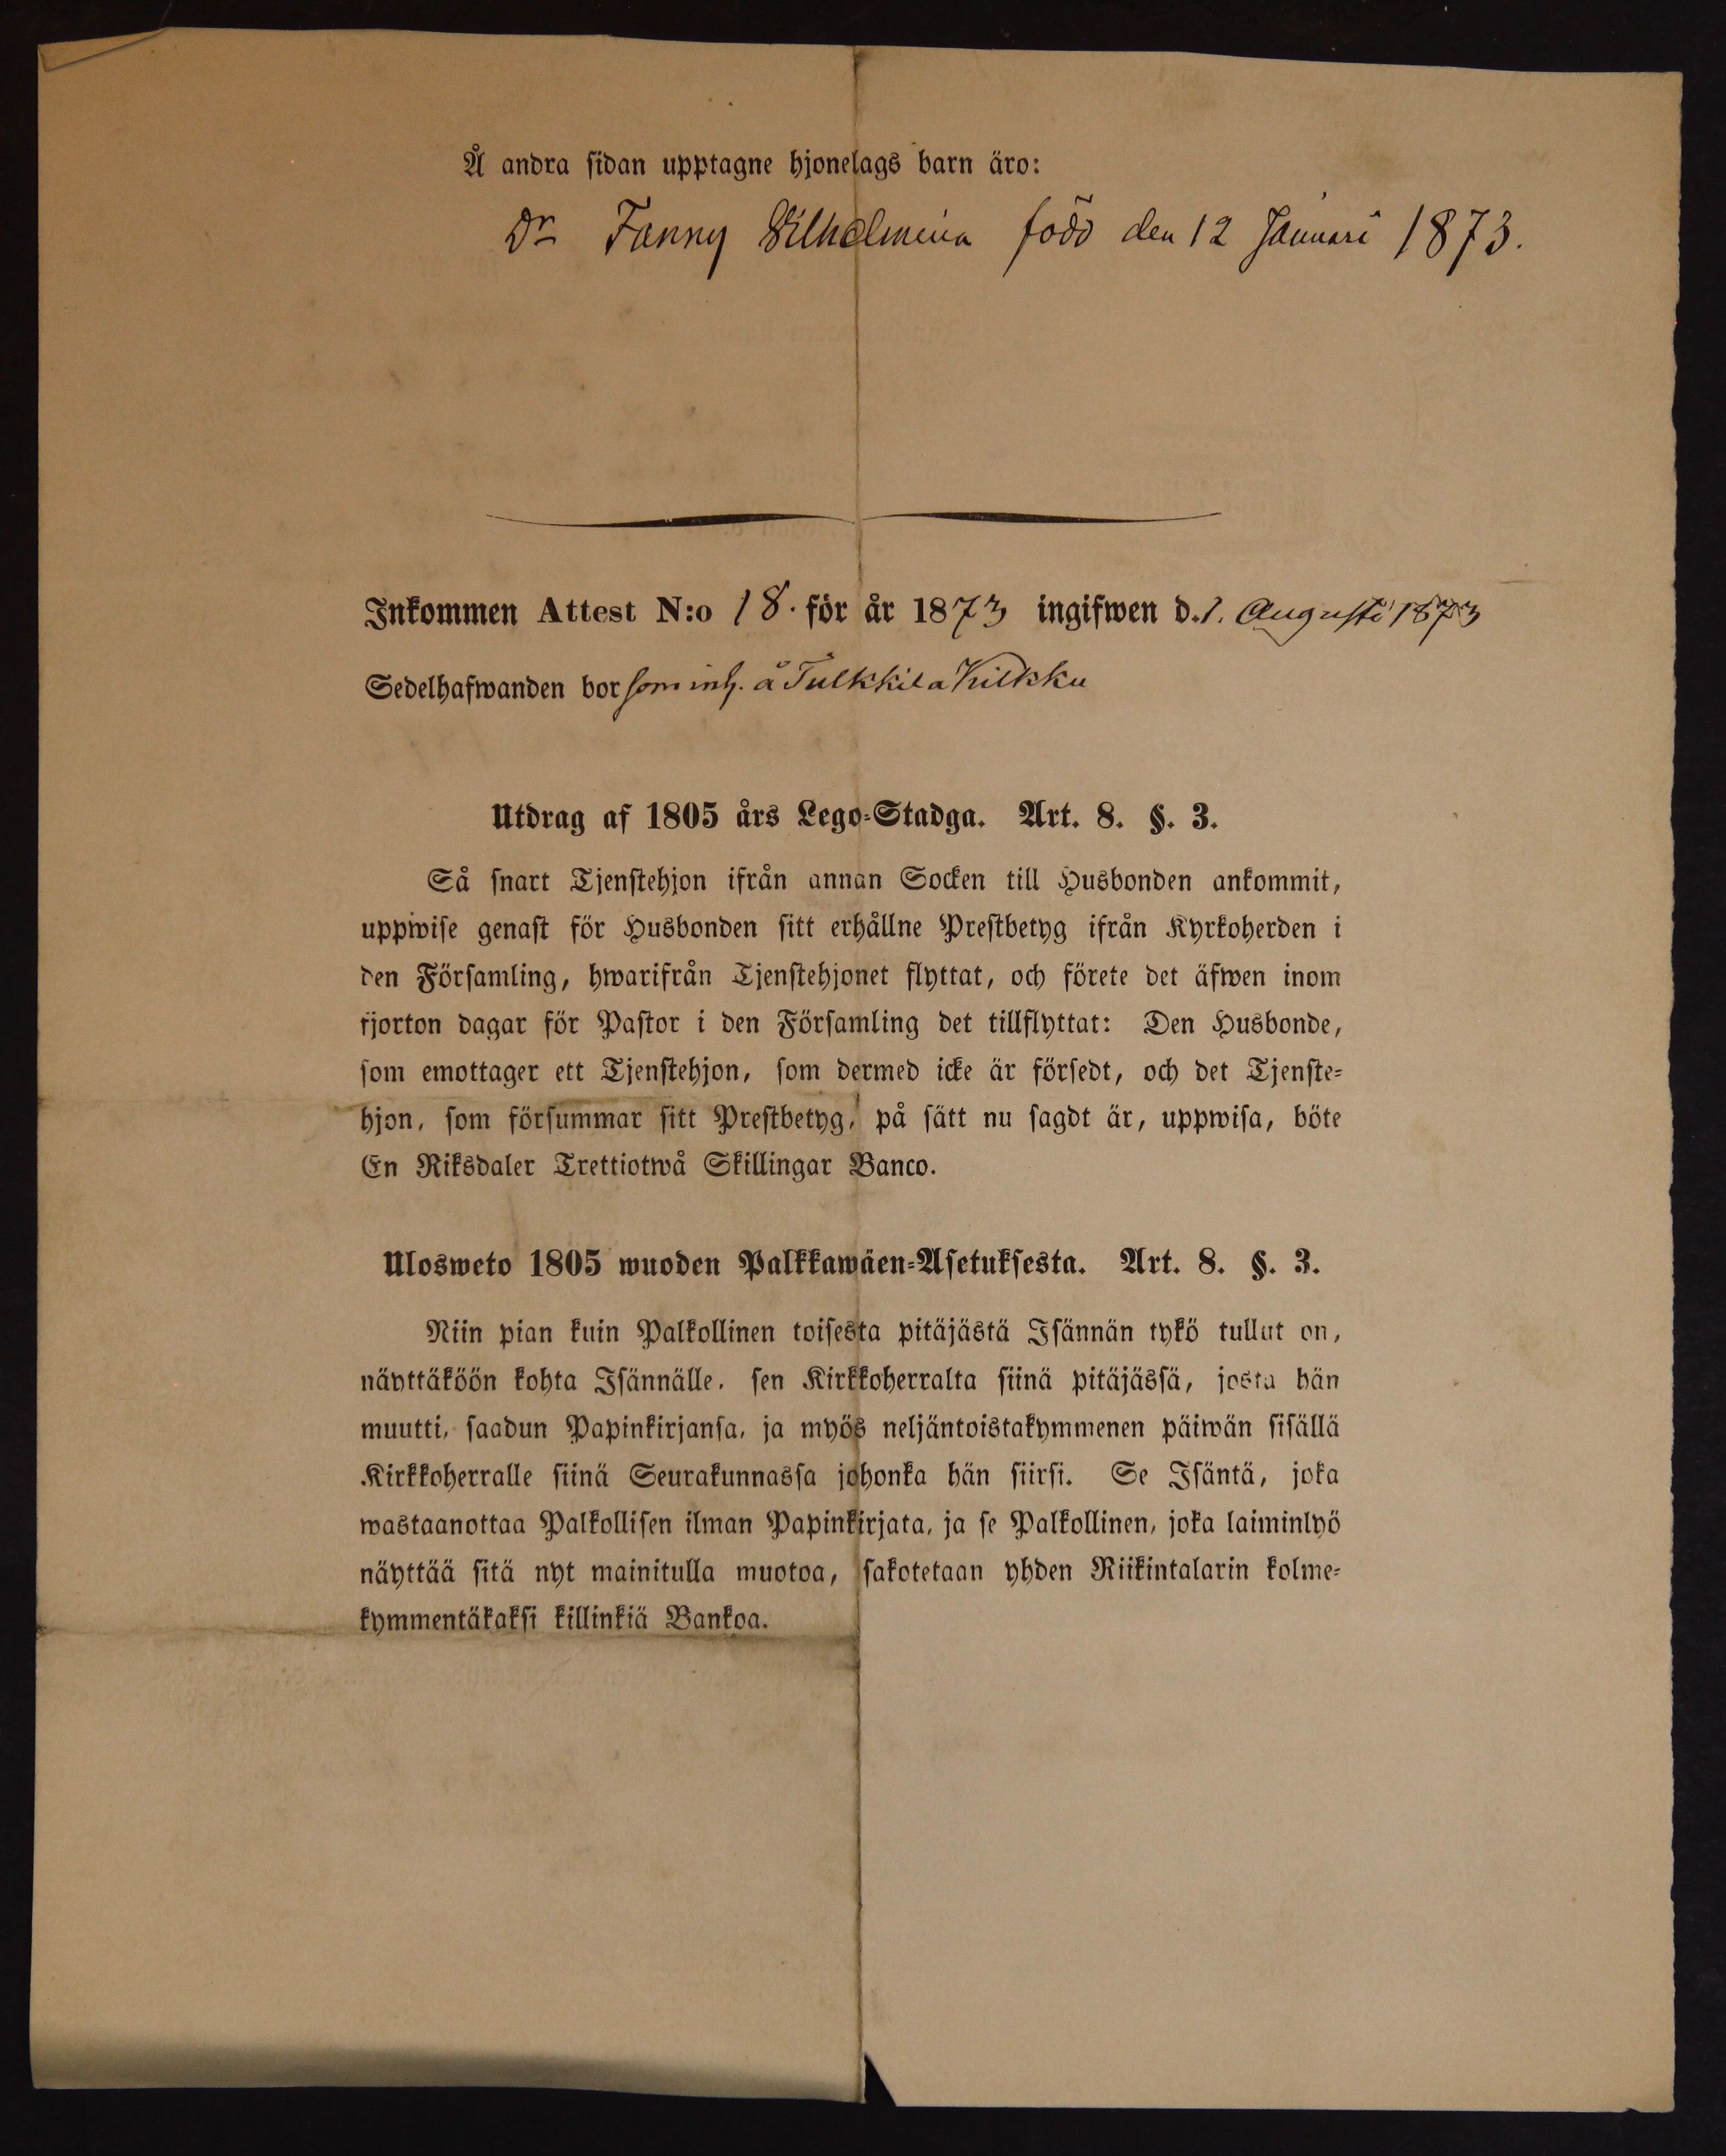 Å andra sidan upptagne hjonelags barn äro:
Dr Fanny Wilhelmina född den 12 Januari 1873.
Inkommen Attest N:o 18. för år 1873 ingifwen d. 1. Augusti 1873
Sedelhafwanden bor som inh. å Tulkkila Kilkku
Utdrag af 1805 års Lego-Stadga. Art. 8. §. 3.
Så snart Tjenstehjon ifrån annan Socken till Husbonden ankommit,
uppwise genast för Husbonden sitt erhållne Prestbetyg ifrån Kyrkoherden i
den Församling, hwarifrån Tjenstehjonet flyttat, och förete det äfwen inom
fjorton dagar för Pastor i den Församling det tillflyttat: Den Husbonde,
som emottager ett Tjenstehjon, som dermed icke är försedt, och det Tjenste-
hjon, som försummar sitt Prestbetyg, på sätt nu sagdt är, uppwisa, böte
En Riksdaler Trettiotwå Skillingar Banco.
Ulosweto 1805 wuoden Palkkawäen-Asetuksesta. Art. 8. §. 3.
Niin pian kuin Palkollinen toisesta pitäjästä Isännän tykö tullut on,
näyttäköön kohta Isännälle, sen Kirkkoherralta siinä pitäjässä, josta hän
muutti, saadun Papinkirjansa, ja myös neljäntoistakymmenen päiwän sisällä
Kirkkoherralle siinä Seurakunnassa johonka hän siirsi. Se Isäntä, joka
wastaanottaa Palkollisen ilman Papinkirjata, ja se Palkollinen, joka laiminlyö
näyttää sitä nyt mainitulla muotoa, sakotetaan yhden Riikintalarin kolme-
kymmentäkaksi killinkiä Bankoa.